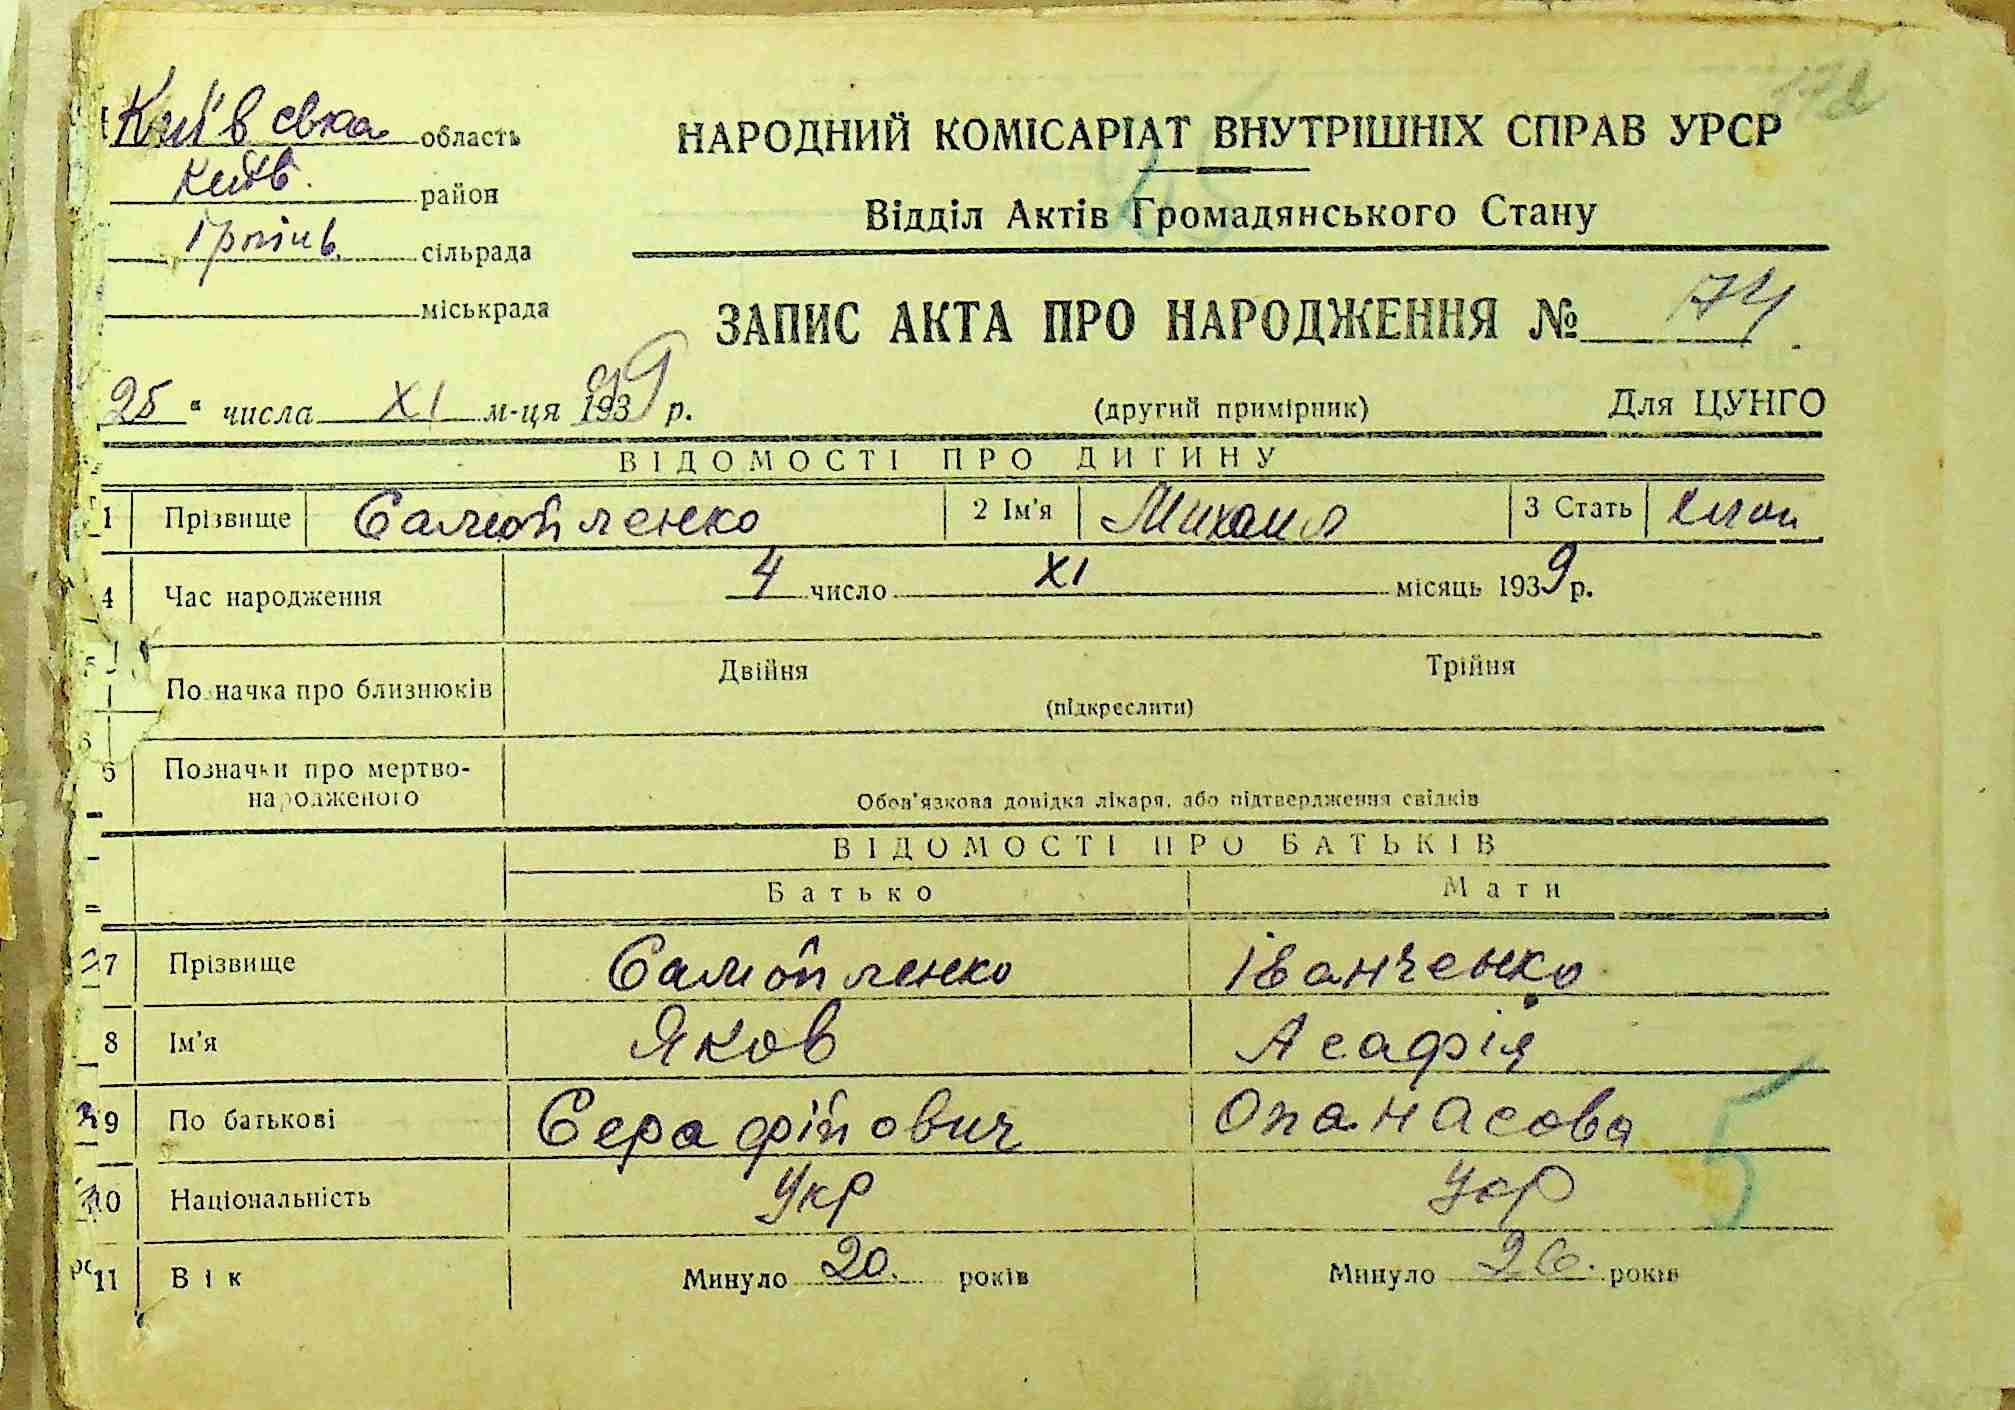 Київська область
Київ. район
Ірпінь сільрада
міськрада
НАРОДНИЙ КОМІСАРІАТ ВНУТРІШНІХ СПРАВ УРСР
Відділ Актів Громадянського Стану
ЗАПИС АКТА ПРО НАРОДЖЕННЯ № 74
25 " числа XI м-ця 1939 р. (другий примірник) Для ЦУНГО
ВІДОМОСТІ ПРО ДИТИНУ
1 Прізвище Самойленко 2 Ім'я Михаил 3 Стать хлоп
4 Час народження 4 число XI місяць 1939 р.
5 Позначка про близнюків Двійня Трійня
(підкреслити)
6 Позначки про мертво-
народженого Обов'язкова довідка лікаря, або підтвердження свідків
ВІДОМОСТІ ПРО БАТЬКІВ
Батько Мати
7 Прізвище Самойленко Іванченко
8 Ім'я Яков Асафія
9 По батькові Серафімович Опанасова
10 Національність Укр Укр
11 Вік Минуло 20. років Минуло 20. років
5